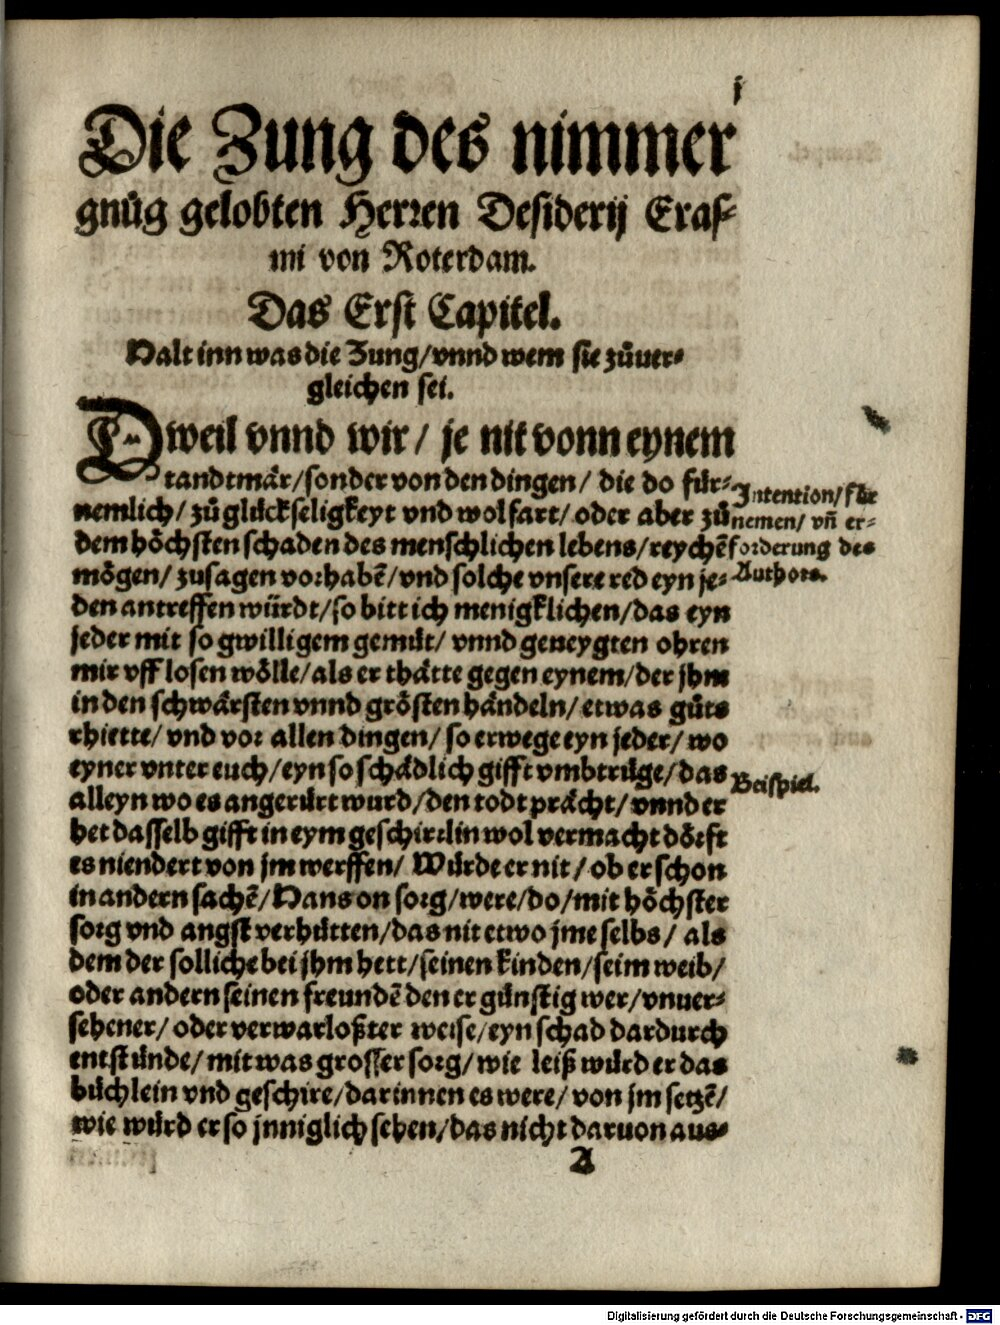 j
Die Zung des nimmer
gnůg gelobten Herren Desiderij Eraſ⸗
mi von Roterdam.
Das Erſt Capitel.
Halt inn was die Zung/ vnnd wem ſie zůuer⸗
gleichen ſei.
Dweil vnnd wir/ je nit vonn eynem
tandtmär/ ſonder von den dingen/ die do für⸗
nemlich/ zů glückſeligkeyt vnd wolfart/ oder aber zů
dem höchſten ſchaden des menſchlichen lebens/ reychẽ
mögen/ zuſagen vorhabẽ/ vnd ſolche vnſere red eyn je⸗
den antreffen würdt/ ſo bitt ich menigklichen/ das eyn
jeder mit ſo gwilligem gemüt/ vnnd geneygten ohren
mir vff loſen wölle/ als er thätte gegen eynem/ der jhm
in den ſchwärſten vnnd gröſten händeln/ etwas gůts
rhiette/ vnd vor allen dingen/ ſo erwege eyn jeder/ wo
eyner vnter euch/ eyn ſo ſchädlich gifft vmbtrüge/ das
alleyn wo es angerürt wurd/ den todt prächt/ vnnd er
het daſſelb gifft in eym geſchirrlin wol vermacht dörft
es niendert von jm werffen/ Würde er nit/ ob er ſchon
in andern ſachẽ/ Hans on ſorg/ were/ do/ mit höchſter
ſorg vnd angſt verhütten/ das nit etwo jme ſelbs/ als
dem der ſolliche bei jhm hett/ ſeinen kinden/ ſeim weib/
oder andern ſeinen freundẽ den er günſtig wer/ vnuer⸗
ſehener/ oder verwarloßter weiſe/ eyn ſchad dardurch
entſtünde/ mit was groſſer ſorg/ wie leiß würd er das
büchlein vnd geſchire/ darinnen es were/ von jm ſetzẽ/
wie würd er ſo jnniglich ſehen/ das nicht daruon aus⸗
A
Intention/ für
nemen/ vñ er⸗
forderung des
Authors.
Beiſpiel.
Digitalisierung gefördert durch die Deutsche Forschungsgemeinschaft - DFG